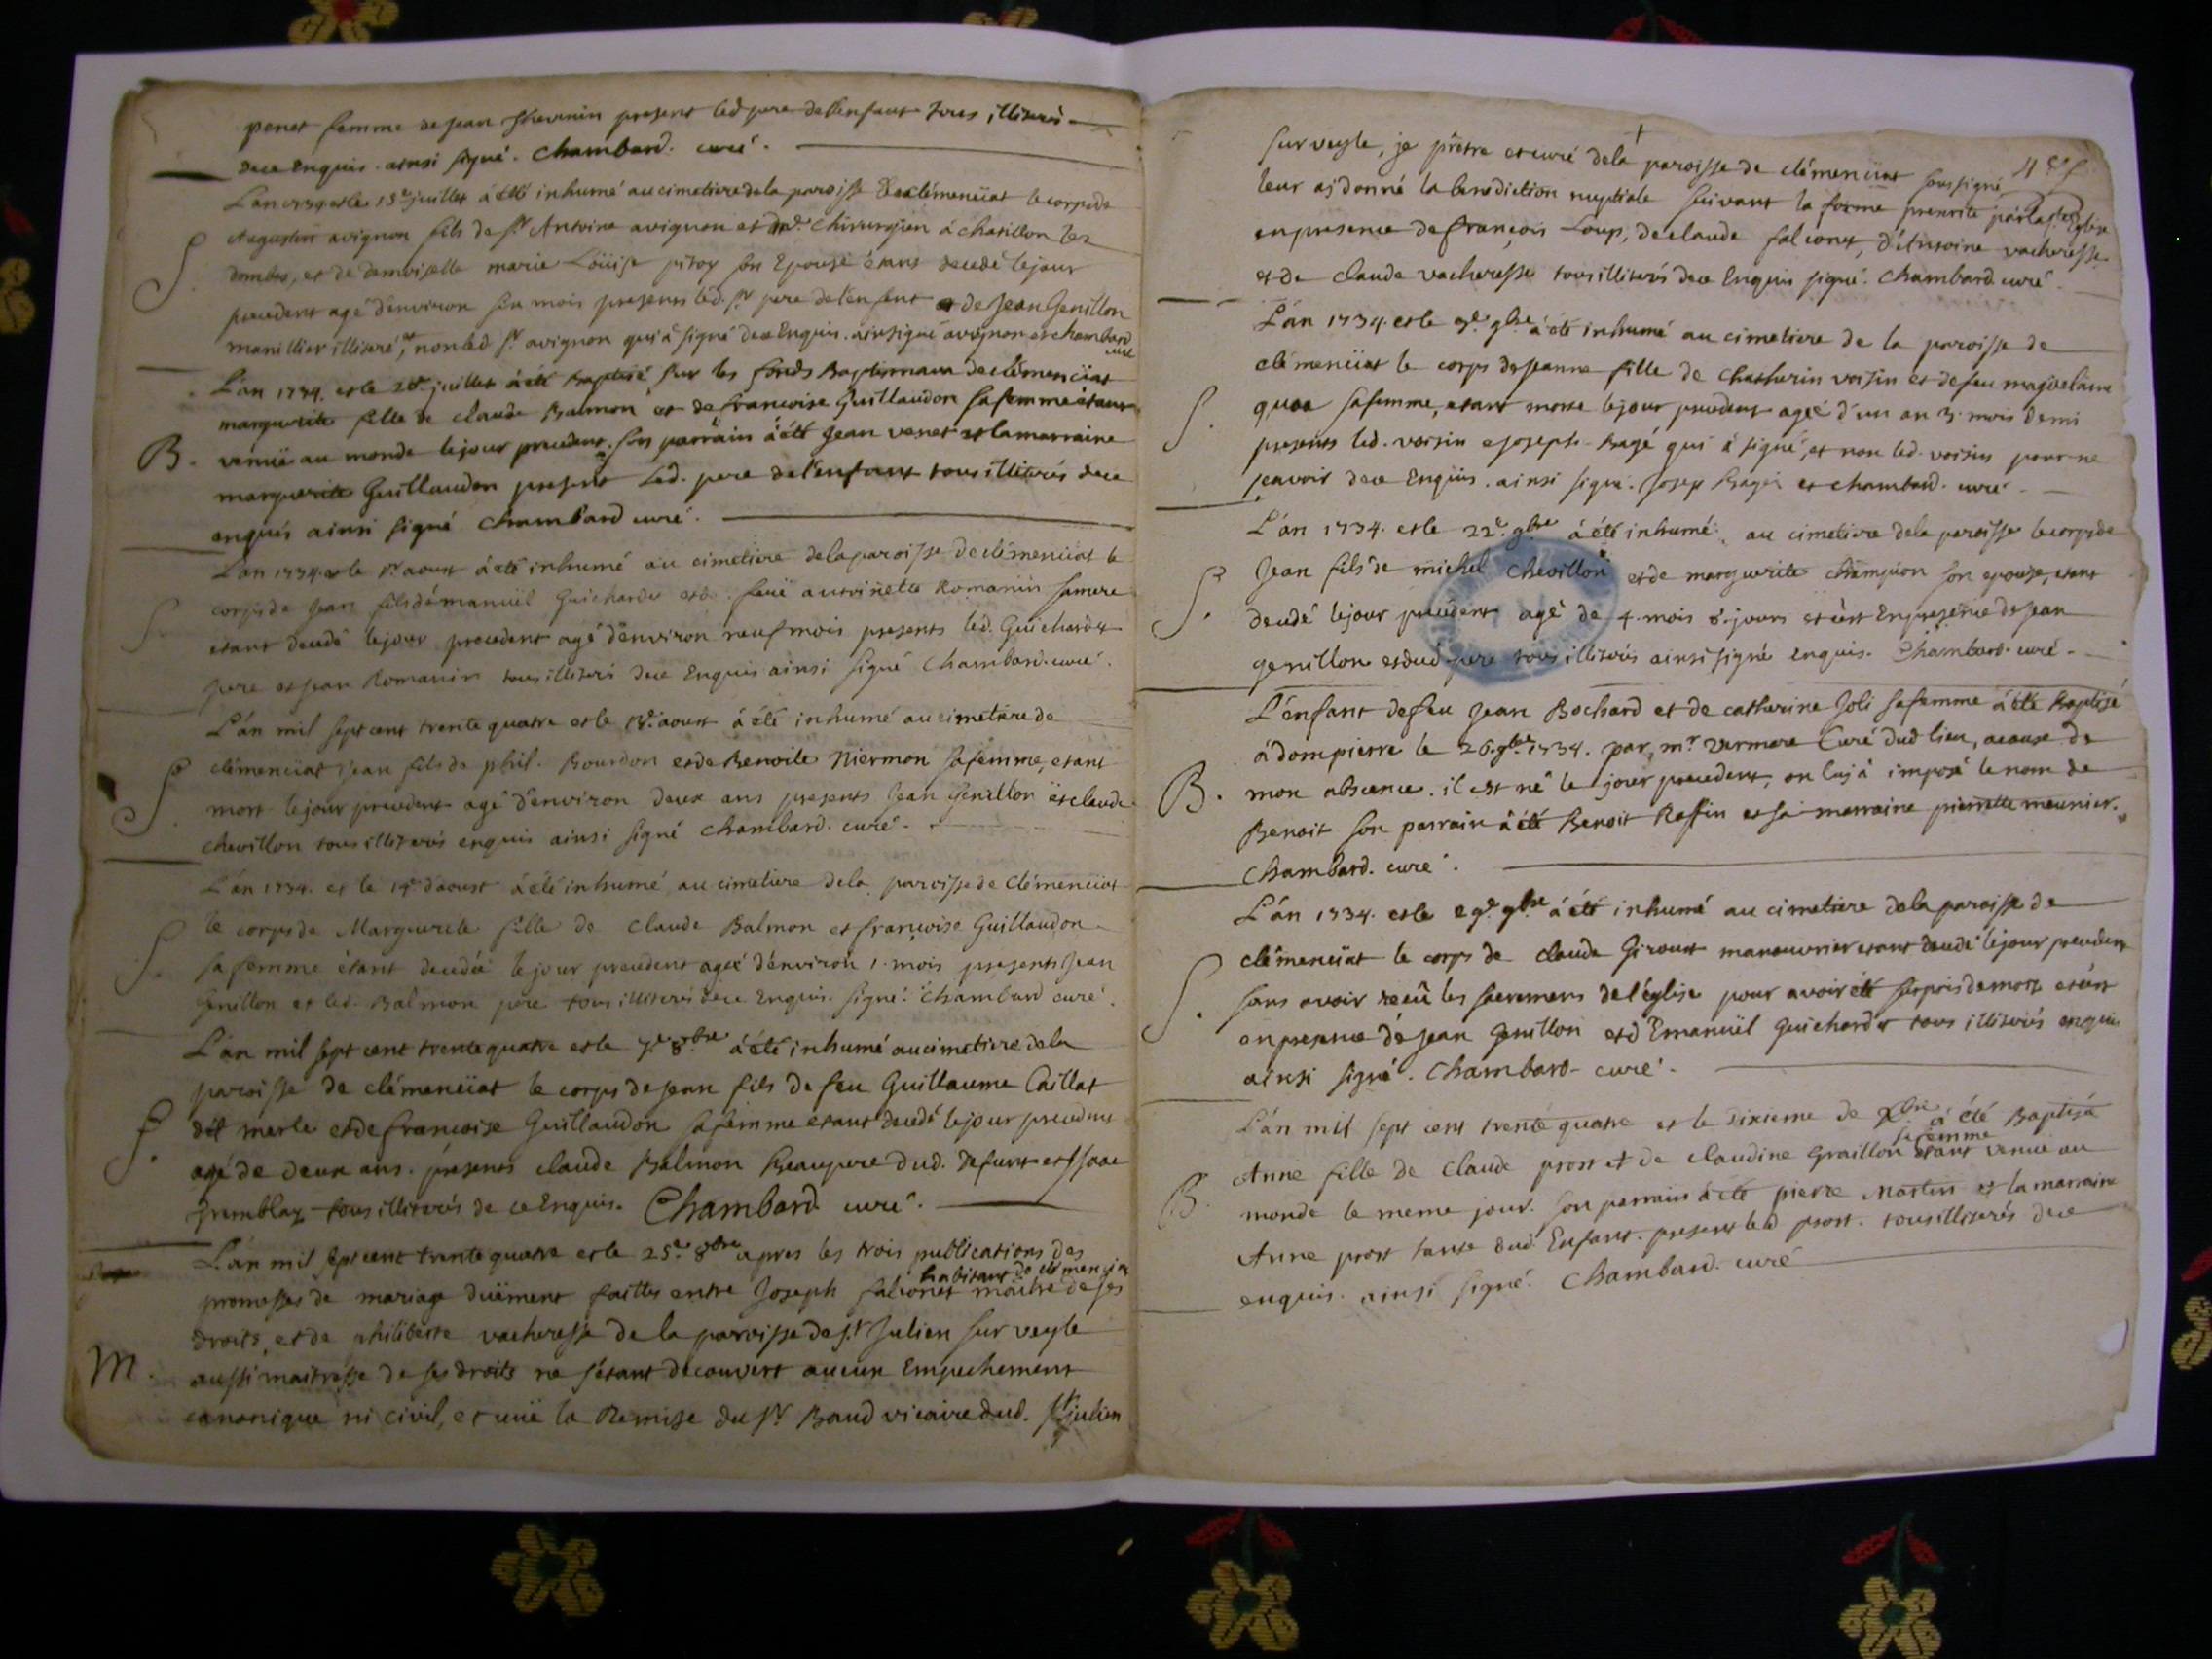 penet femme de jean present led pere de l'enfant tous illiterés
dece enquis. ainsi signé. Chambard. curé.
L'an 1734 et le 15e juillet à été inhumé au cimetiere de la paroisse de clémenciat le corps de
S. Augustin avignon fils de sr Antoine avignon et chirurgien à chatillon lez
dombes, et de demoiselle marie Loüise pitoy son Epouse étant decedé le jour
precedent agé d'environ un mois presents led. sr pere de l'enfent et de Jean Genillon
manillier illiteré, et non led sr avignon qui à signé dece Enquis. ainsi signé avignon et chambard
curé
L'an 1734. et le juillet à été baptisé sur les fonds Baptismaux de clémenciat
marguerite fille de claude Balmon et de francoise Guillaudon sa femme étant
B. venuë au monde le jour precedent. son parrain à été Jean venet et la marraine
marguerite Guillaudon present Led. pere de l'enfant tous illiterés dece
enquis ainsi signé Chambard curé.
L'an 1734. et le 1r aoust à été inhumé au cimetiere de la paroisse de clémenciat le
S corps de Jean fils d'émanuël Guichardet et de feüe antoinette Romanin sa mere
etant decedé le jour precedent agé d'environ neuf mois presents led. Guichardet
pere et jean Romanin tous illiterés dece Enquis ainsi signé Chambard. curé.
L'án mil sept cent trente quatre et le aoust à été inhumé au cimetiere de
S. clémenciat jean fils de phil. Bourdon et de Benoite Niermon sa femme, etant
mort le jour precedent agé d'environ deux ans presents Jean Genillon et claude
chevillon tous illiterés enquis ainsi signé chambard. curé.
L'án 1734. et le 14e d'aoust à été inhumé au cimetiere de la paroisse de Clémenciat
S. le corps de Marguerite fille de Claude Balmon et françoise Guillaudon
sa femme étant decedée le jour precedent ageé d'énviron 1. mois presents Jean
Genillon et led. Balmon pere tous illiterés dece Enquis. signé. Chambard curé.
L'án mil sept cent trente quatre et le 7e 8bre à été inhumé au cimetiere de la
paroisse de clémenciat le corps de jean fils de feu Guillaume Caillat
S. dit merle et de francoise Guillaudon sa femme etant decedé le jour precedent
agé de deux ans. présents claude Balmon Beaupere dud. defunt et Isaac
tremblay tous illiterés de ce Enquis. Chambard curé.
L'án mil sept cent trente quatre et le 25e 8bre apres les trois publications des
habitant de clémenciat
promesses de mariage duëment faittes entre Joseph falconet maitre de ses
droits, et de philiberte vacheresse de la paroisse de st Julien sur veyle
M. aussi maitresse de ses droits ne s'étant decouvert aucun Empechement
canonique ni civil, et vuë la Remise du sr Baud vicaire dud. st julien
sur veyle, je prêtre et curé de la paroisse de clémenciat soussigné
leur aj donné la benediction nuptiale suivant la forme prescrite par la ste Eglise
en presence de françois Loup, de claude falconet, d'Antoine vacheresse
et de claude vacheresse tous illiterés dece Enquis signé. Chambard. curé
L'án 1734. et le 9bre à été inhumé au cimetiere de la paroisse de
clémenciat le corps de jeanne fille de Chatherin voisin et de feu magdelaine
S. sa femme, etant morte le jour precedent ageé d'un an 3. mois demi
presents led. voisin e joseph Bagé qui à signé, et non led. voisin pour ne
sçavoir dece Enquis. ainsi signé. Josep Bagé et chambard. curé.
L'án 1734. et le 22e. 9bre à été inhumé au cimetiere de la paroisse le corps de
S. Jean fils de michel Chevillon et de marguerite champion son epouse, etant
decedé le jour precedent agé de 4. mois 8. jours et c'est En presence de jean
genillon et dud pere tous illiterés ainsi signé enquis. Chambard. curé.
L'enfant de feu Jean Bochard et de catherine Joli sa femme à été Baptisé
à dompierre le 26. 9bre 1734. par, mr vermare Curé dud lieu, acause de
B. mon absence. il est né le jour precedent, on luj à imposé le nom de
Benoit son parrain à été Benoit Raffin et sa marraine pierrette meunier.
Chambard. curé.
L'án 1734. et le 29e 9bre à été inhumé au cimetiere de la paroisse de
clémenciat le corps de claude Giroust manouvrier etant decedé le jour precedent
S. sans avoir receû les sacremens de l'église pour avoir été de mort et c'est
en presence de jean Genillon et d'Emanuël Guichardet tous illiterés enquis
ainsi signé. Chambard curé.
L'án mil sept cent trente quatre et le dixieme de Xbre à été Baptisée
sa femme
B. Anne fille de Claude prost et de claudine Graillon étant venue au
monde le meme jour. son parrain à été pierre Martin et la marraine
Anne prost tante dud. Enfant. present led prost. tous illiterés dece
enquis. ainsi signé. Chambard. curé